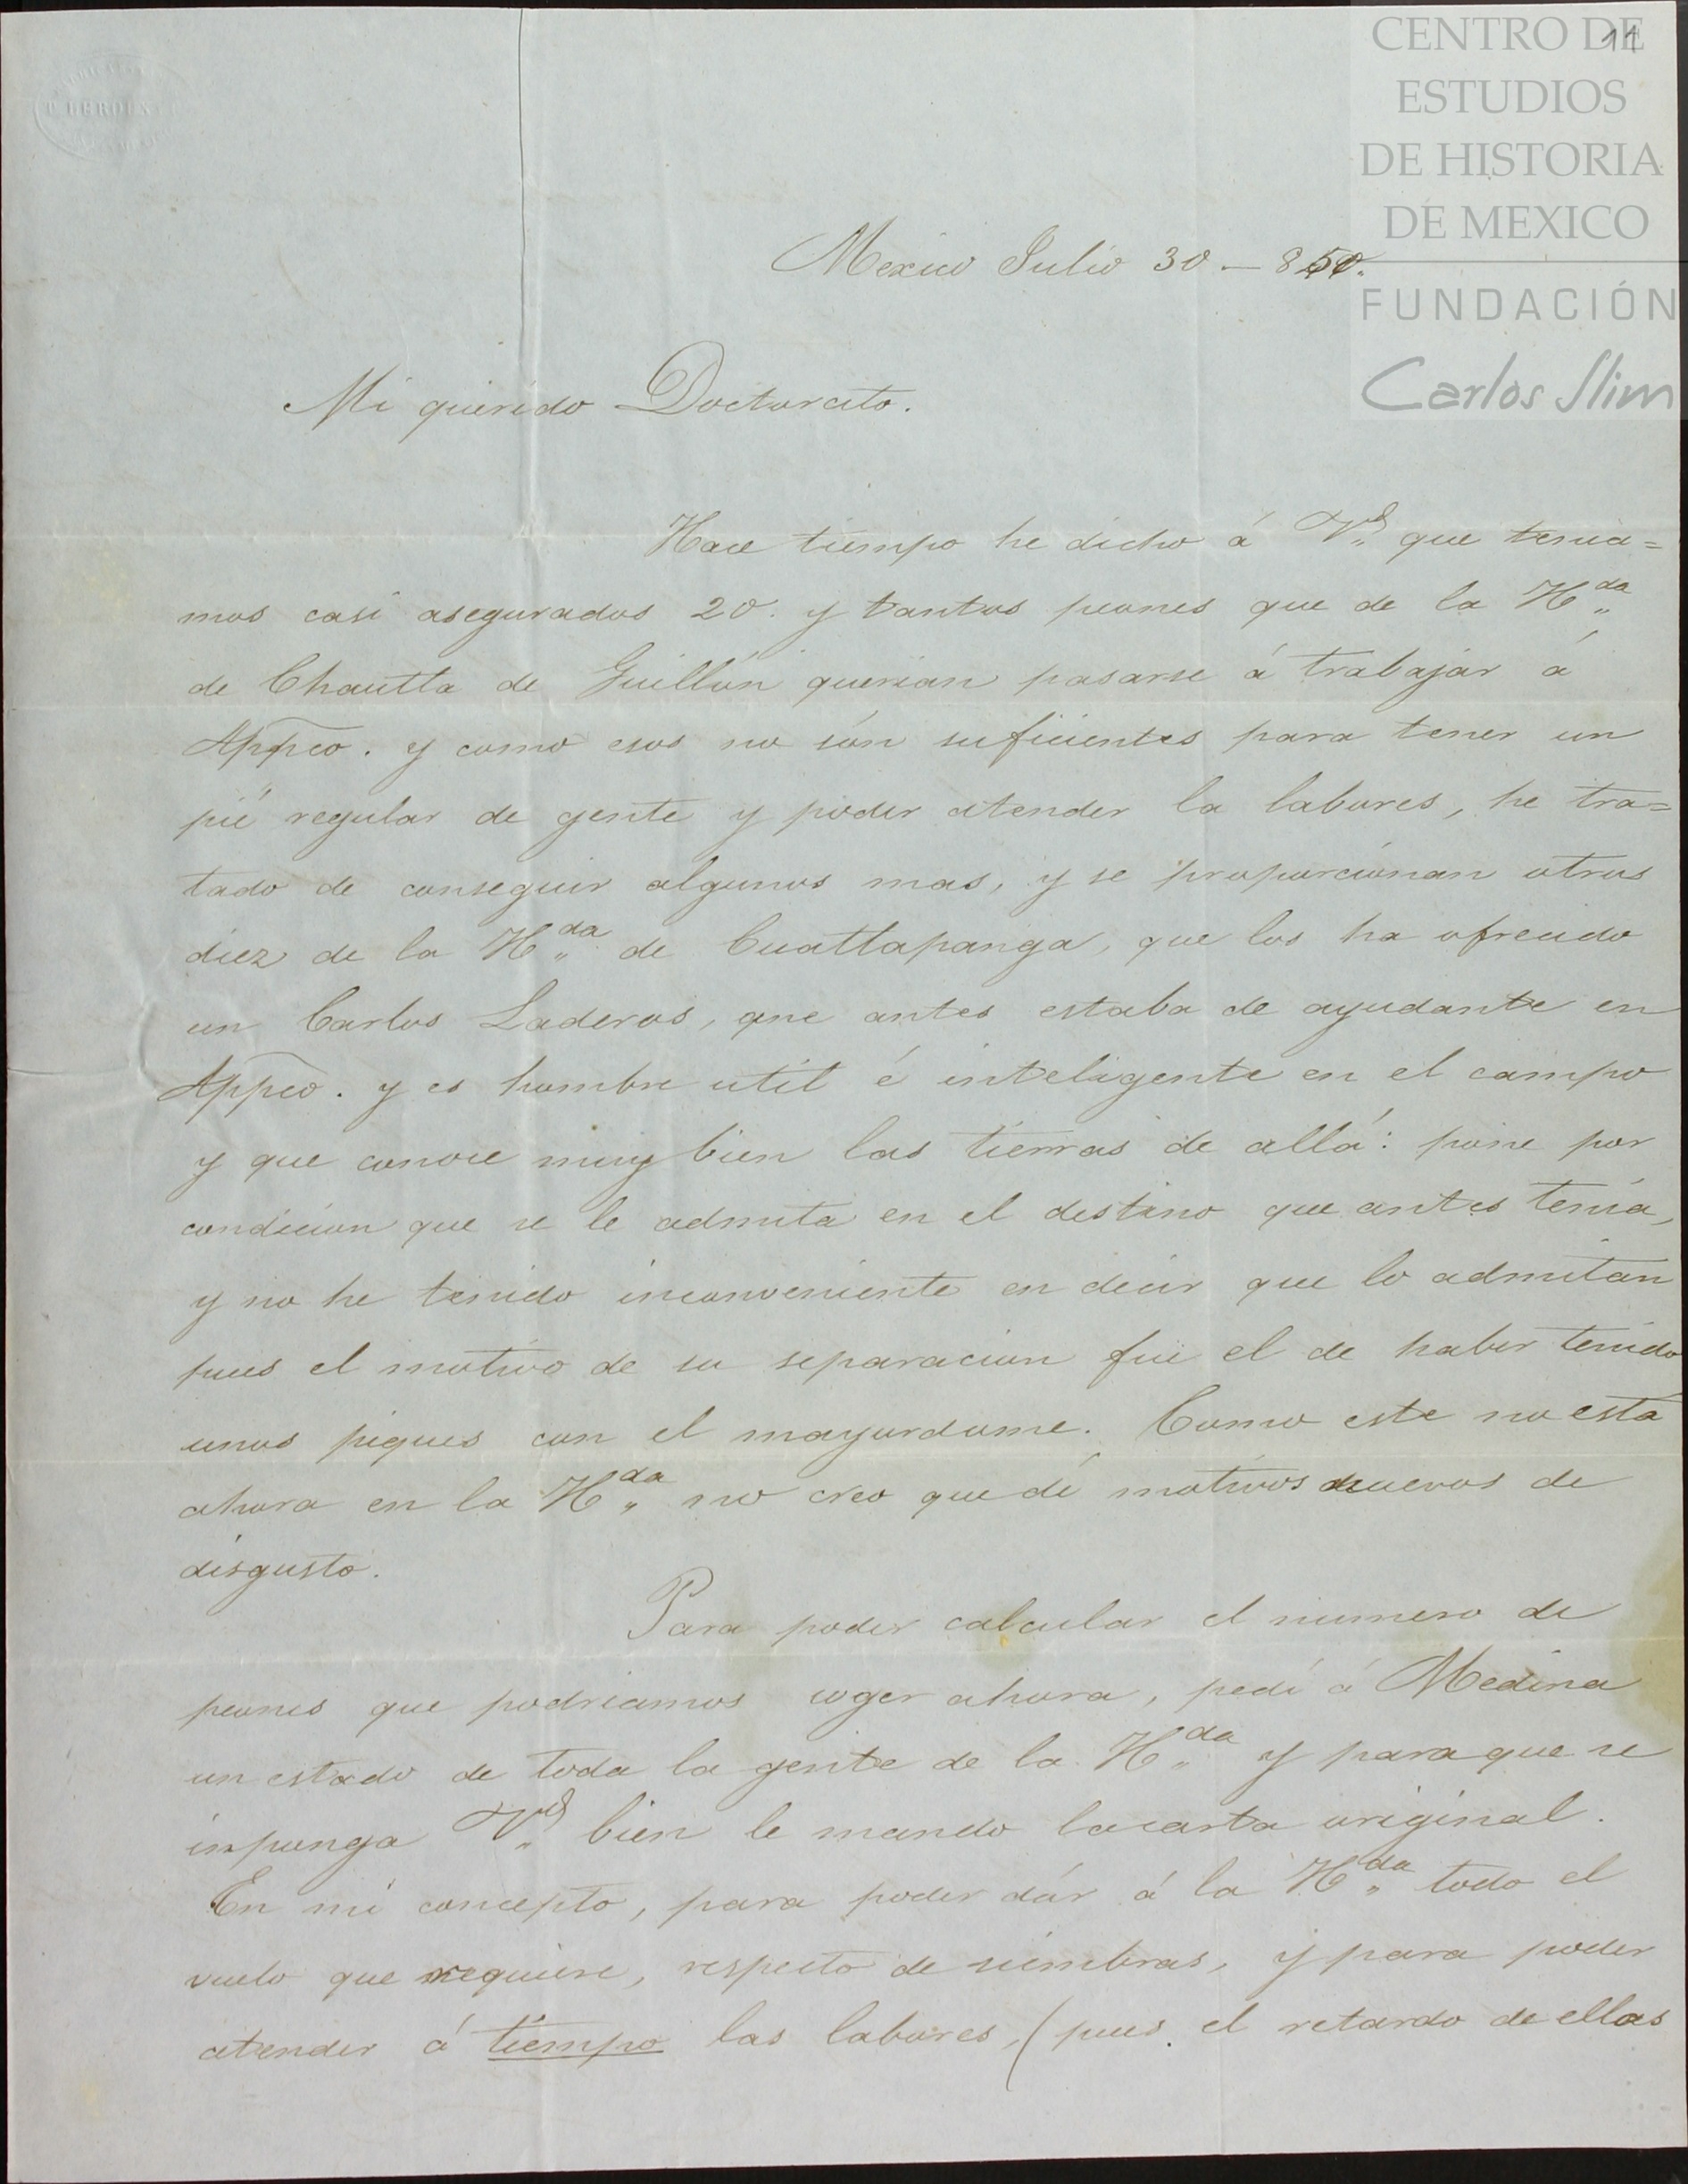 11
CENTRO DE
ESTUDIOS
DE HISTORIA
DE MEXICO
FUNDACIÓN
Carlos Slim
Mexico Julio 30 – 850.
Mi querido Doctorcito.
Hace tiempo he dicho á Vd. que tenia=
mos casi asegurados 20. y tantos peones que de la Hda
de Chautla de Guillen querian pasarse á trabajar á
Appco. y como esos no són suficientes para tener un
pié regular de gente y poder atender la labores, he tra=
tado de conseguir algunos mas, y se proporcionan otros
diez de la Hda de Cuatlapanga, que los ha ofrecido
un Carlos Laderos, que antes estaba de ayudante en
Appco. y es hombre util é inteligente en el campo
y que conoce muy bien las tierras de allá: pone por
condicion que se le admita en el destino que antes tenia,
y no he tenido inconveniente en decir que lo admitan
pues el motivo de su separacion fué el de haber tenido
unos piques con el mayordomo. Como este no está
ahora en la Hda no creo que dé motivos nuevos de
disgusto.
Para poder calcular el numero de
peones que podriamos coger ahora, pedí á Medina
un estado de toda la gente de la Hda y para que se
imponga Vd. bien le mando la carta original.
En mi concepto, para poder dár á la Hda todo el
vuelo que requiere, respecto de siembras, y para poder
atender á tiempo las labores, (pues el retardo de ellas